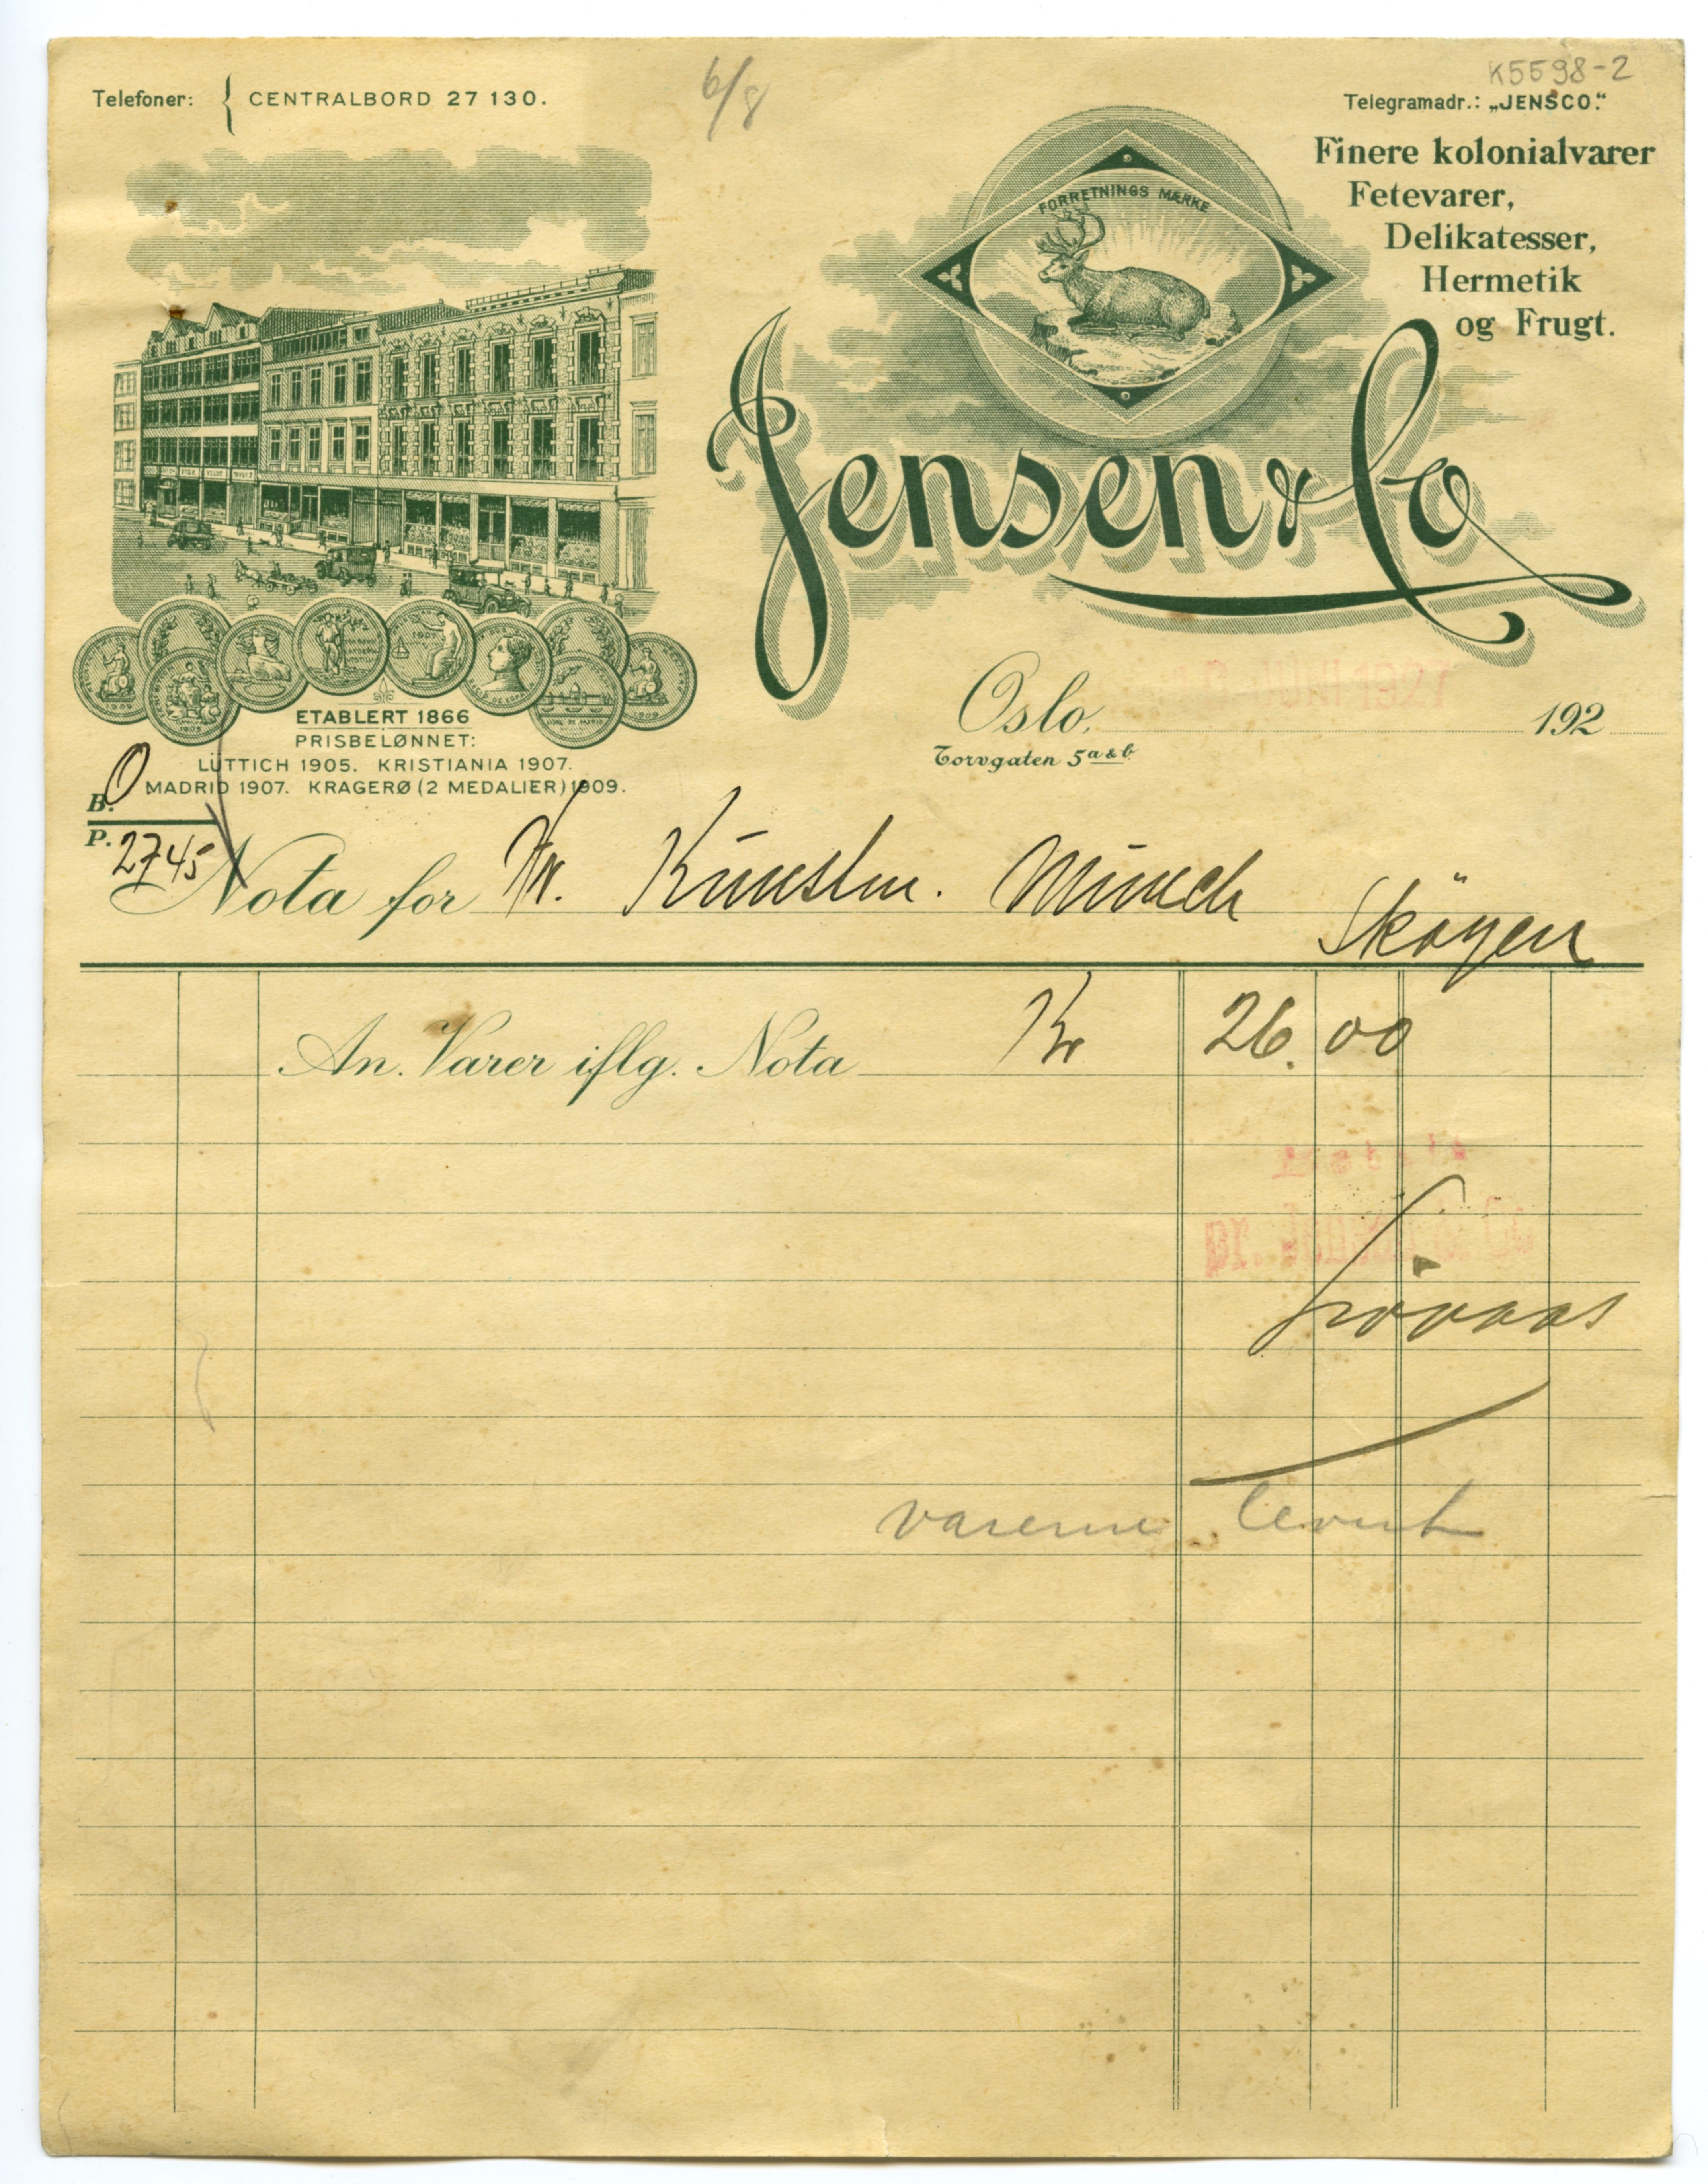 K5598-2
6/8
Telefoner: { CENTRALBORD 27 130.
Telegramadr.: „JENSCO."
Finere kolonialvarer
Fetevarer,
Delikatesser,
Hermetik
og Frugt.
FORRETNINGS MÆRKE
Jensen & Co
ETABLERT 1866
PRISBELØNNET:
LÜTTICH 1905. KRISTIANIA 1907.
MADRID 1907. KRAGERØ (2 MEDALIER) 1909.
Oslo, 192
Torvgaten 5 a & b
B. 0
P. 2745
Nota for Hr. Kunstm. Munch
Skøyen
An. Varer iflg. Nota Kr 26.00
varerne levert